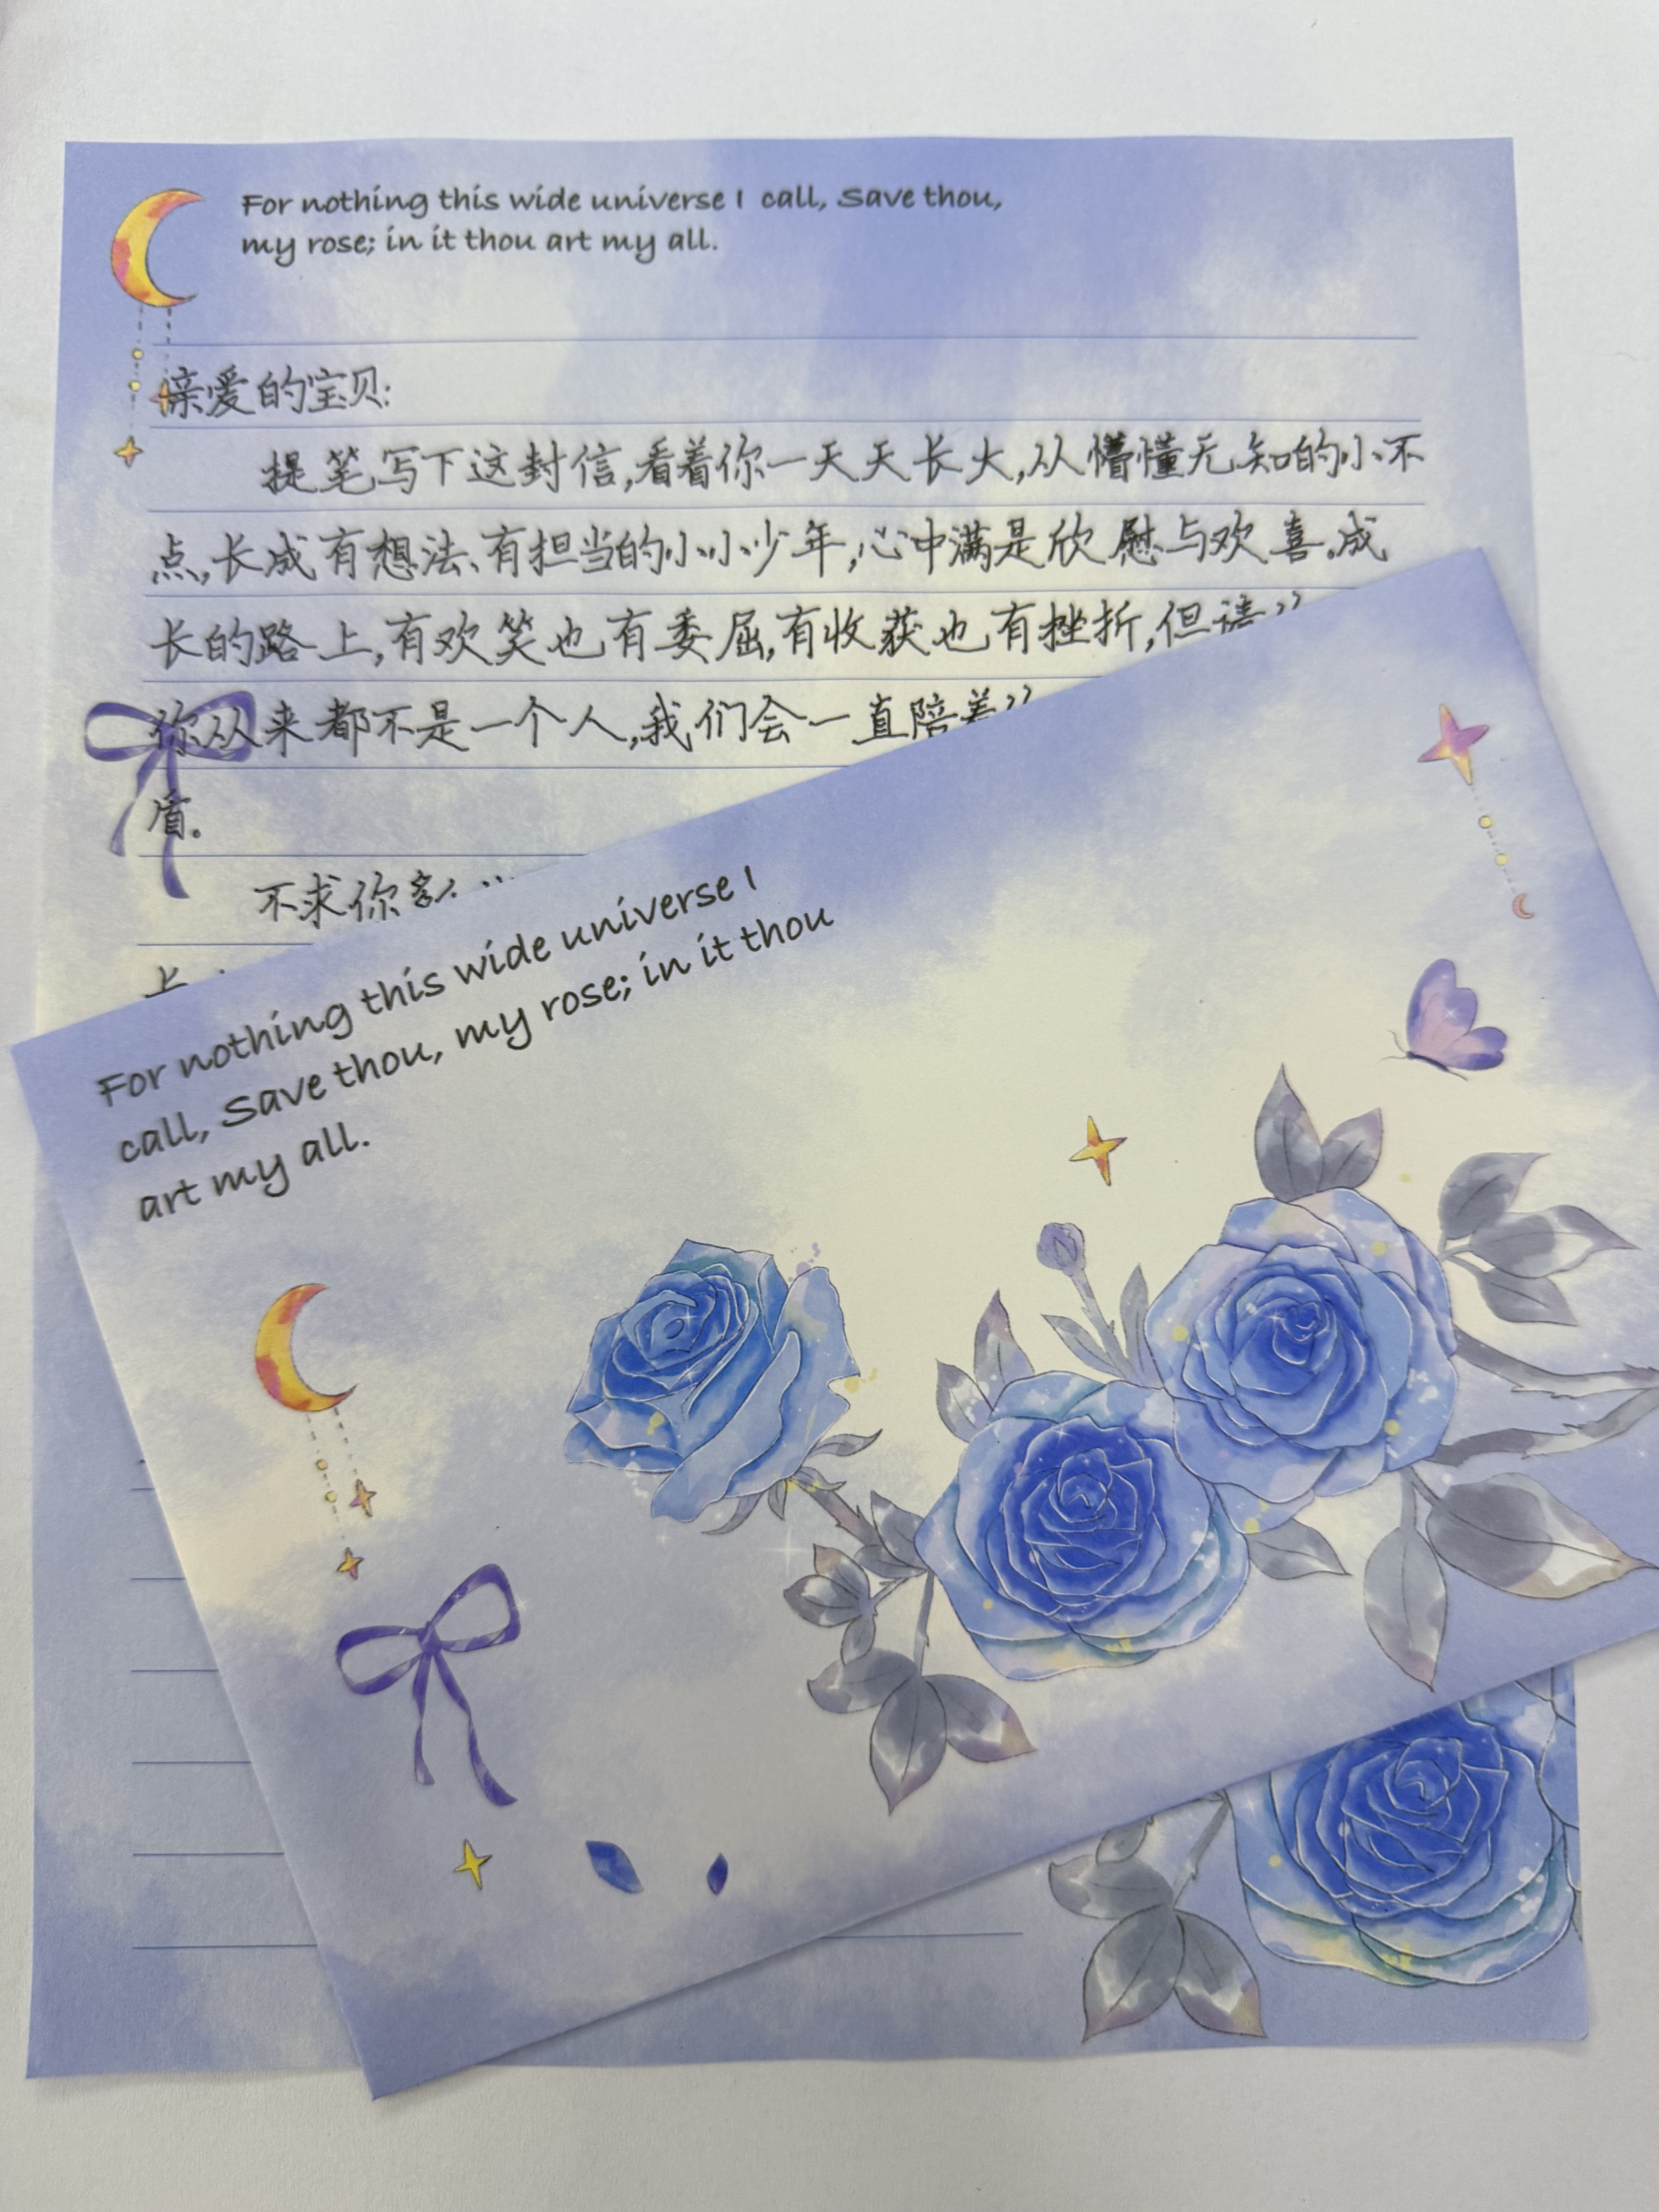 For nothing this wide universe I call, Save thou,
my rose; in it thou art my all.
亲爱的宝贝:
提笔写下这封信,看着你一天天长大,从懵懂无知的小不
点,长成有想法、有担当的小小少年,心中满是欣慰与欢喜。成
长的路上,有欢笑也有委屈,有收获也有挫折,但请
你从来都不是一个人,我们会一直陪着
盾。
不求你
For nothing this wide universe I
call, Save thou, my rose; in it thou
art my all.